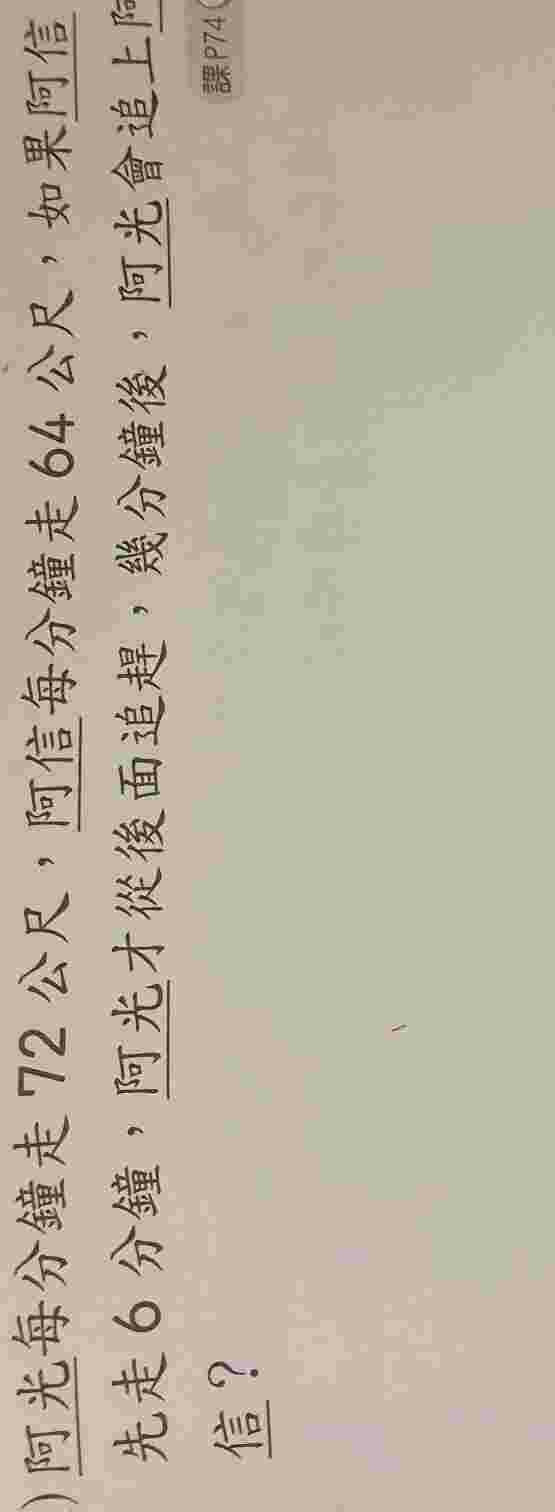 )阿光每分鐘走72公尺，阿信每分鐘走64公尺，如果阿信
先走6分鐘，阿光才從後面追趕，幾分鐘後，阿光會追上阿
信？
課P74